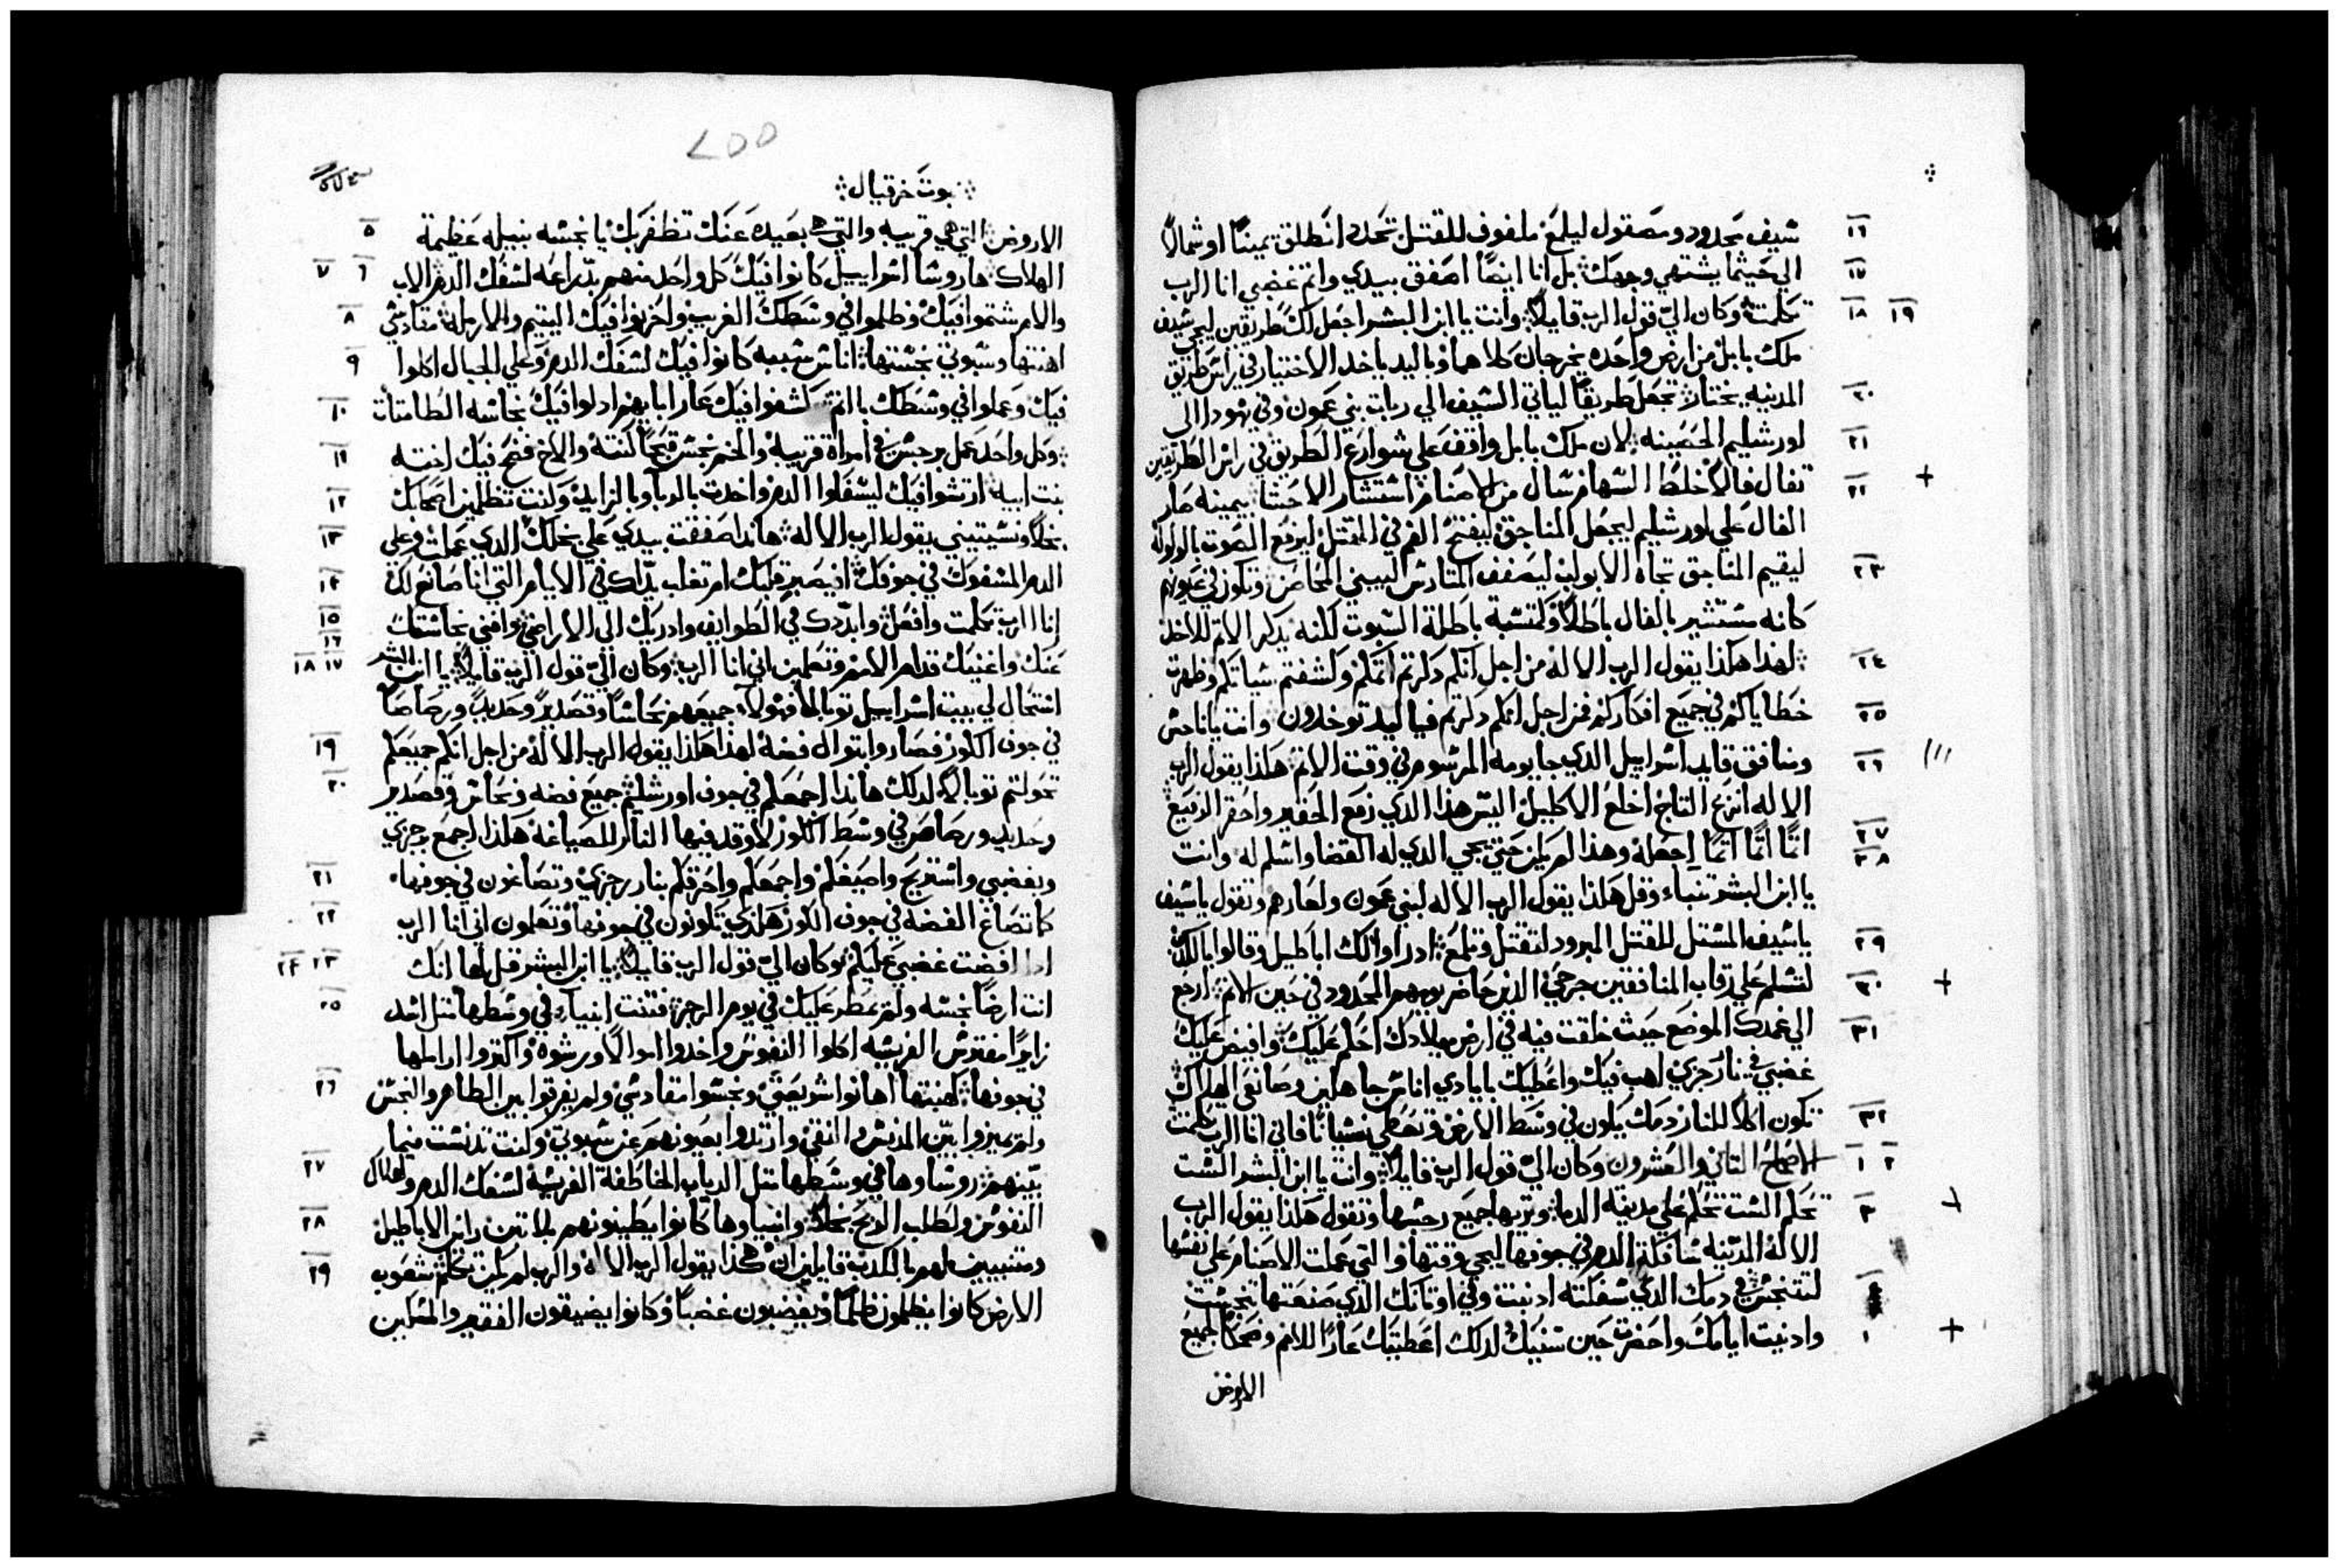 شيف محدود ومصقول ليلمع ملفوف للقتل تحدد انطلق يمينًا او شمالاً
الي حيثما يشتهي وجهك بل انا ايضًا اصفق بيدي واتم غضبي انا الرب
تكلمت وكان اليّ قول الرب قايلاً وانت يا ابن البشر اجعل لك طريقين ليجي شيف
ملك بابل من ارض واحده يخرجان كلاهما وباليد ياخد الاختيار في راس طريق
المدينه يختار تجعل طريقًا لياتي الشيف الي ربات بني عمون وفي يهودا الى
اورشليم الحصينه لان ملك بابل واقف علي شوارع الطريق في راس الطريقين
تفال فالاً خلط السهام سال من الاصنام استشار الاحشا بيمينه صار
الفال علي اورشليم ليجعل المناجق ليفتح الفم في القتل ليرفع الصوت بالولوله
ليقيم المناجق تجاه الابواب ليصفف المتارش ليبني المحاصن وتكون في عيونهم
كانه مستشير بالفال باطلاً وكمتشبة باطلة السبوت لكنه يدكر الاتم للاخد
لهذا هكذا يقول الرب الاله من اجل انكم دكرتم اتمكم وكشفتم سياتكم وظهرت
خطاياكم في جميع افكاركم فمن اجل انكم دكرتم فباليد توخدون وانت يا ناجس
ومنافق قايد اسراييل الدي جا يومه المرسوم في وقت الاتم هكذا يقول الرب
الاله انزع التاج اخلع الاكليل اليس هذا الدي رفع الحقير واحقر الرفيع
اتمًا اتمًا اتمًا اجعله وهذا لم يكن حتي يجي الدي له القضا واسلم له وانت
يا ابن البشر تنباء وقل هكذا يقول الرب الاله لبني عمون ولعارهم وتقول يا شيف
يا شيف المستل للقتل المبرود لتقتل وتلمع ادراوا لك اباطيل وقالوا بالكدب
لتسلم علي رقاب المنافقين جرحي الذين حاضر يومهم المحدود في حين الاتم ارجع
الي غمدك الموضع حيث خلقت فيه في ارض ميلادك احكم عليك وافيض عليك
غضبي في نار رجزي اهب فيك واعطيك بايادي اناس جاهلين وصانعي الهلاك
تكون اكلاً للنار دمك يكون في وسط الارض وتعطي نسيانًا فاني انا الرب تكلمت
الاصحاح التاني والعشرون وكان اليّ قول الرب قايلاً وانت يا ابن البشر الست
تحكم الست تحكم علي مدينة الدما وتريها جميع رجسها وتقول هكذا يقول الرب
الاله المدينه سافكة الدم في جوفها ليجي وقتها والتي عملت الاصنام علي نفسها
لتتنجس في دمك الدي سفكته ادنبت وفي اوتانك الدي صنعتها تنجست
وادنيت ايامك واحضرت حين سنيك لدلك اعطيتك عارًا للامم وضحكًا لجميع
الاروض
نبوة حزقيال
الاروض التي هي قريبه والتي هي بعيده عنك تظفر بك يا نجسه نبيله عظيمة
الهلاك ها روسا اسراييل كانوا فيك كل واحد منهم بدراعه لسفك الدم الاب
والام شتموا فيك وظلموا في وسطك الغريب واحزنوا فيك اليتيم والارمله مقادسي
اهنتها وسبوتي نجستها اناس شببه كانوا فيك لسفك الدم وعلي الجبال اكلوا
فيك وعملوا في وسطك بالاتم كشفوا فيك عار ابايهم ادلوا فيك نجاسه الطامتات
وكل واحد عمل برجس في امراة قريبه والختن نجس قبحًا كنته والاخ فضح فيك اخته
بنت ابيه ارتشوا فيك ليسفكوا الدم واخدت بالربا وبالزايد وكنت تظلمين اصحابك
بخلاً ونسيتيني يقول الرب الاله هاندا صفقت بيدي علي بخلك الدي عملت وعلي
الدم المسفوك في جوفك ان يصبر قلبك ام تغلب يداك في الايام التي انا صانع لك
انا الرب تكلمت وافعل وابددك في الطوايف وادريك الي الاراضي وافني نجاستك
عنك واغنيك قدام الامم وتعلمين اني انا الرب وكان اليّ قول الرب قايلاً يا ابن البشر
استحال لي بيت اسراييل توبالاً فهولاء جميعهم نحاسًا وقصديرًا وحديدًا ورصاصًا
في جوف الكور فصاروا بتوال فضه لهذا هكذا يقول الرب الاله من اجل انكم جميعكم
تحولتم توبالاً لدلك هاندا اجمعكم في جوف اورشليم جميع فضه ونحاس وقصدير
وحديد ورصاص في وسط الكور لاوقد فيها النار للصياغه هكذا اجمع برجزي
وبغضبي واستريح واصيغكم واجمعكم واحرقكم بنار رجزي وتصاغون في جوفها
كما تصاغ الفضه في جوف الكور هكذي تكونون في جوفها وتعلمون اني انا الرب
ادا افضت غضبي عليكم وكان اليّ قول الرب قايلاً يا ابن البشر قل لها انك
انت ارضًا نجسه ولم تمطر عليك في يوم الرجز فتنت انبياء في وسطها متل اسد
زايرًا مفترش الفريسه اكلوا النفوس واخدوا اموالاً ورشوة واكتروا اراملها
في جوفها كهنتها اهانوا شريعتي ونجسوا مقادسي ولم يفرقوا بين الطاهر والنجس
ولم يميزوا بين المدنس والنقي وارتدوا بعيونهم عن سبوتي وكنت تدنست فيما
بينهم روساوها في وسطها متل الدياب الخاطفة الفريسة لسفك الدم وهلاك
النفوس ولطلب الربح بخلاً وانبياوها كانوا يطينونهم بلا تبن رايين الاباطيل
ومتنبيين لهم بالكدب قايلين ان هكذا يقول الرب الاله والرب لم يكن تكلم شعوب
الارض كانوا يظلمون ظلمًا ويغضبون غضبًا وكانوا يضيقون الفقير والمسكين